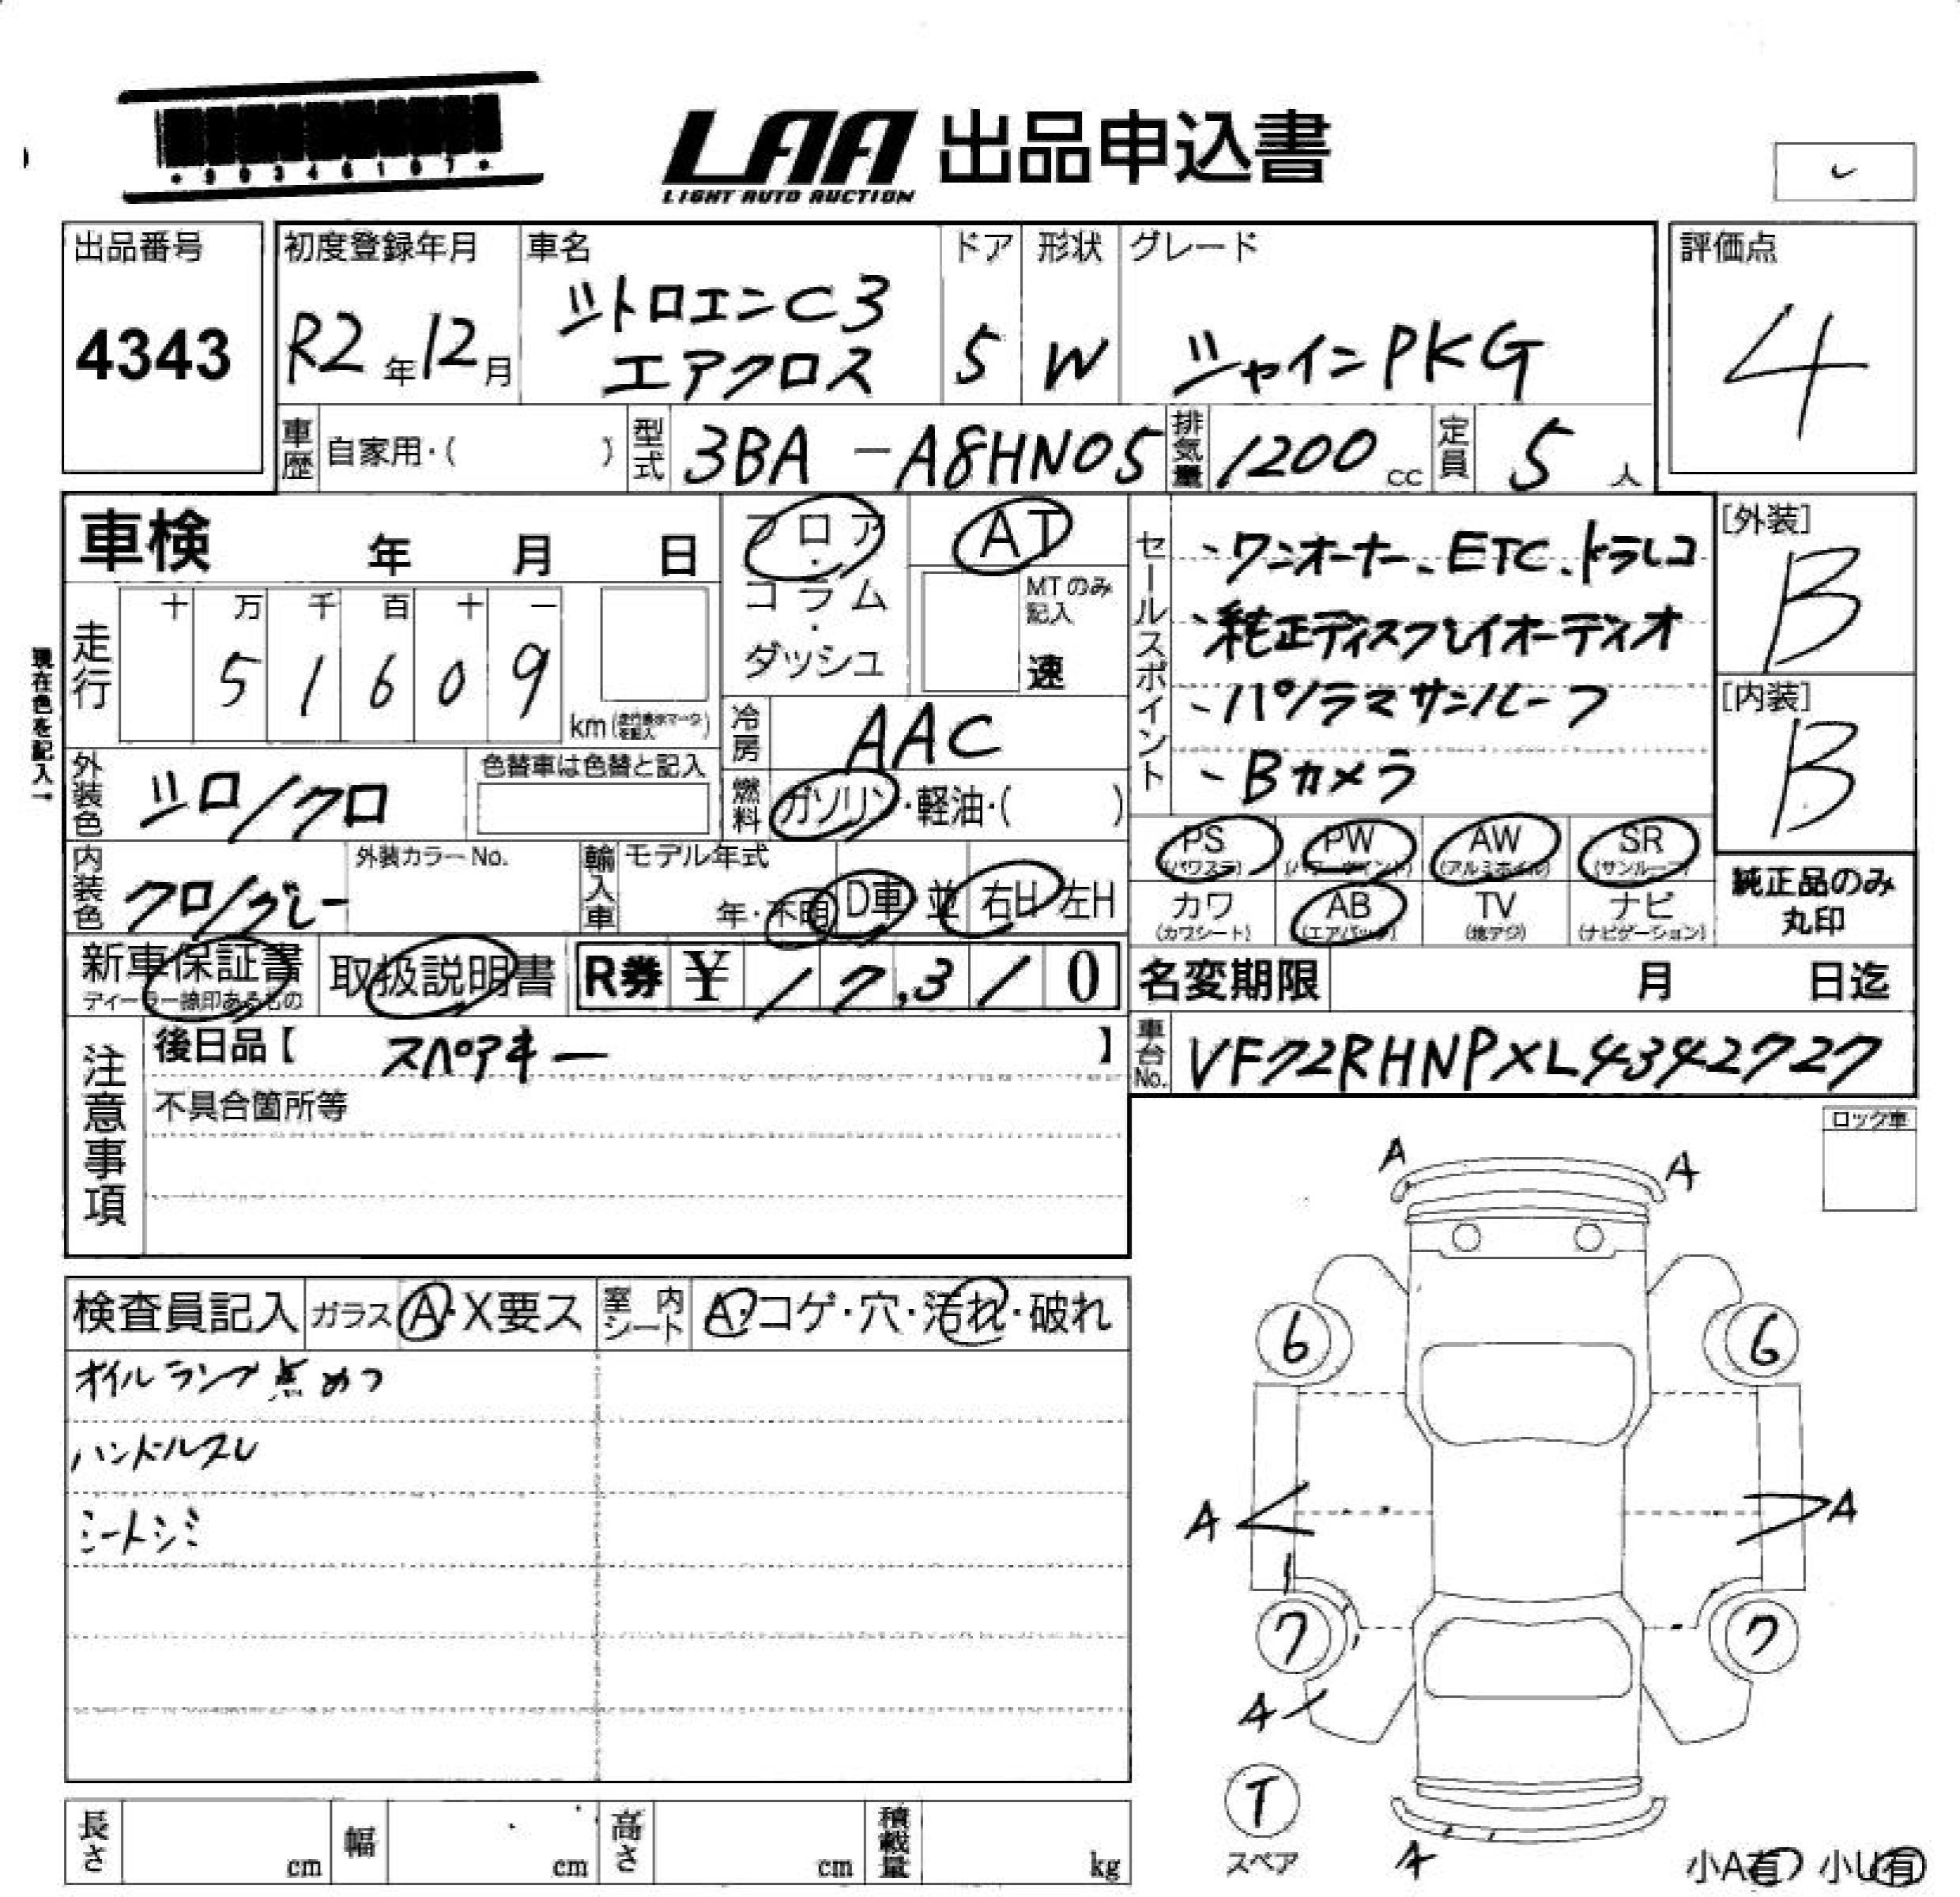 LAA 出品申込書
LIGHT AUTO AUCTION
出品番号
4343
初度登録年月
R2年12月
車名
シトロエンC3
エアクロス
ドア
5
形状
W
グレード
シャインPKG
評価点
4
車歴 自家用・( )
型式 3BA - A8HN05
排気量 1200 cc
定員 5 人
車検 年 月 日
フロア・コラム・ダッシュ
AT
MTのみ記入
速
セールスポイント
、ワンオーナー、ETC、ドラレコ
、純正ディスプレイオーディオ
、パノラマサンルーフ
、Bカメラ
[外装]
B
[内装]
B
現在色を記入→
走行
十 万 千 百 十 一
5 1 6 0 9
km
冷房 AAC
燃料 ガソリン・軽油・( )
外装色 シロ/クロ
色替車は色替と記入
内装色 クロ/グレー
外装カラーNo.
輸入車 モデル年式
年・不明 D車 並 右H 左H
PS (パワステ) PW (パワーウインド) AW (アルミホイル) SR (サンルーフ)
カワ (カワシート) AB (エアバック) TV (地デジ) ナビ (ナビゲーション)
純正品のみ
丸印
新車保証書
取扱説明書
R券 ¥ 17,310
名変期限 月 日迄
注意事項
後日品【 スペアキー 】
車台No. VF72RHNPXL4342727
不具合箇所等
ロック車
検査員記入 ガラス A・X要ス 室内シート A・コゲ・穴・汚れ・破れ
オイルランプ点めつ
ハンドルスレ
シートシミ
A A
6 6
A A
7 7
A
T
スペア
A
小A有 小U有
長さ cm 幅 cm 高さ cm 積載量 kg